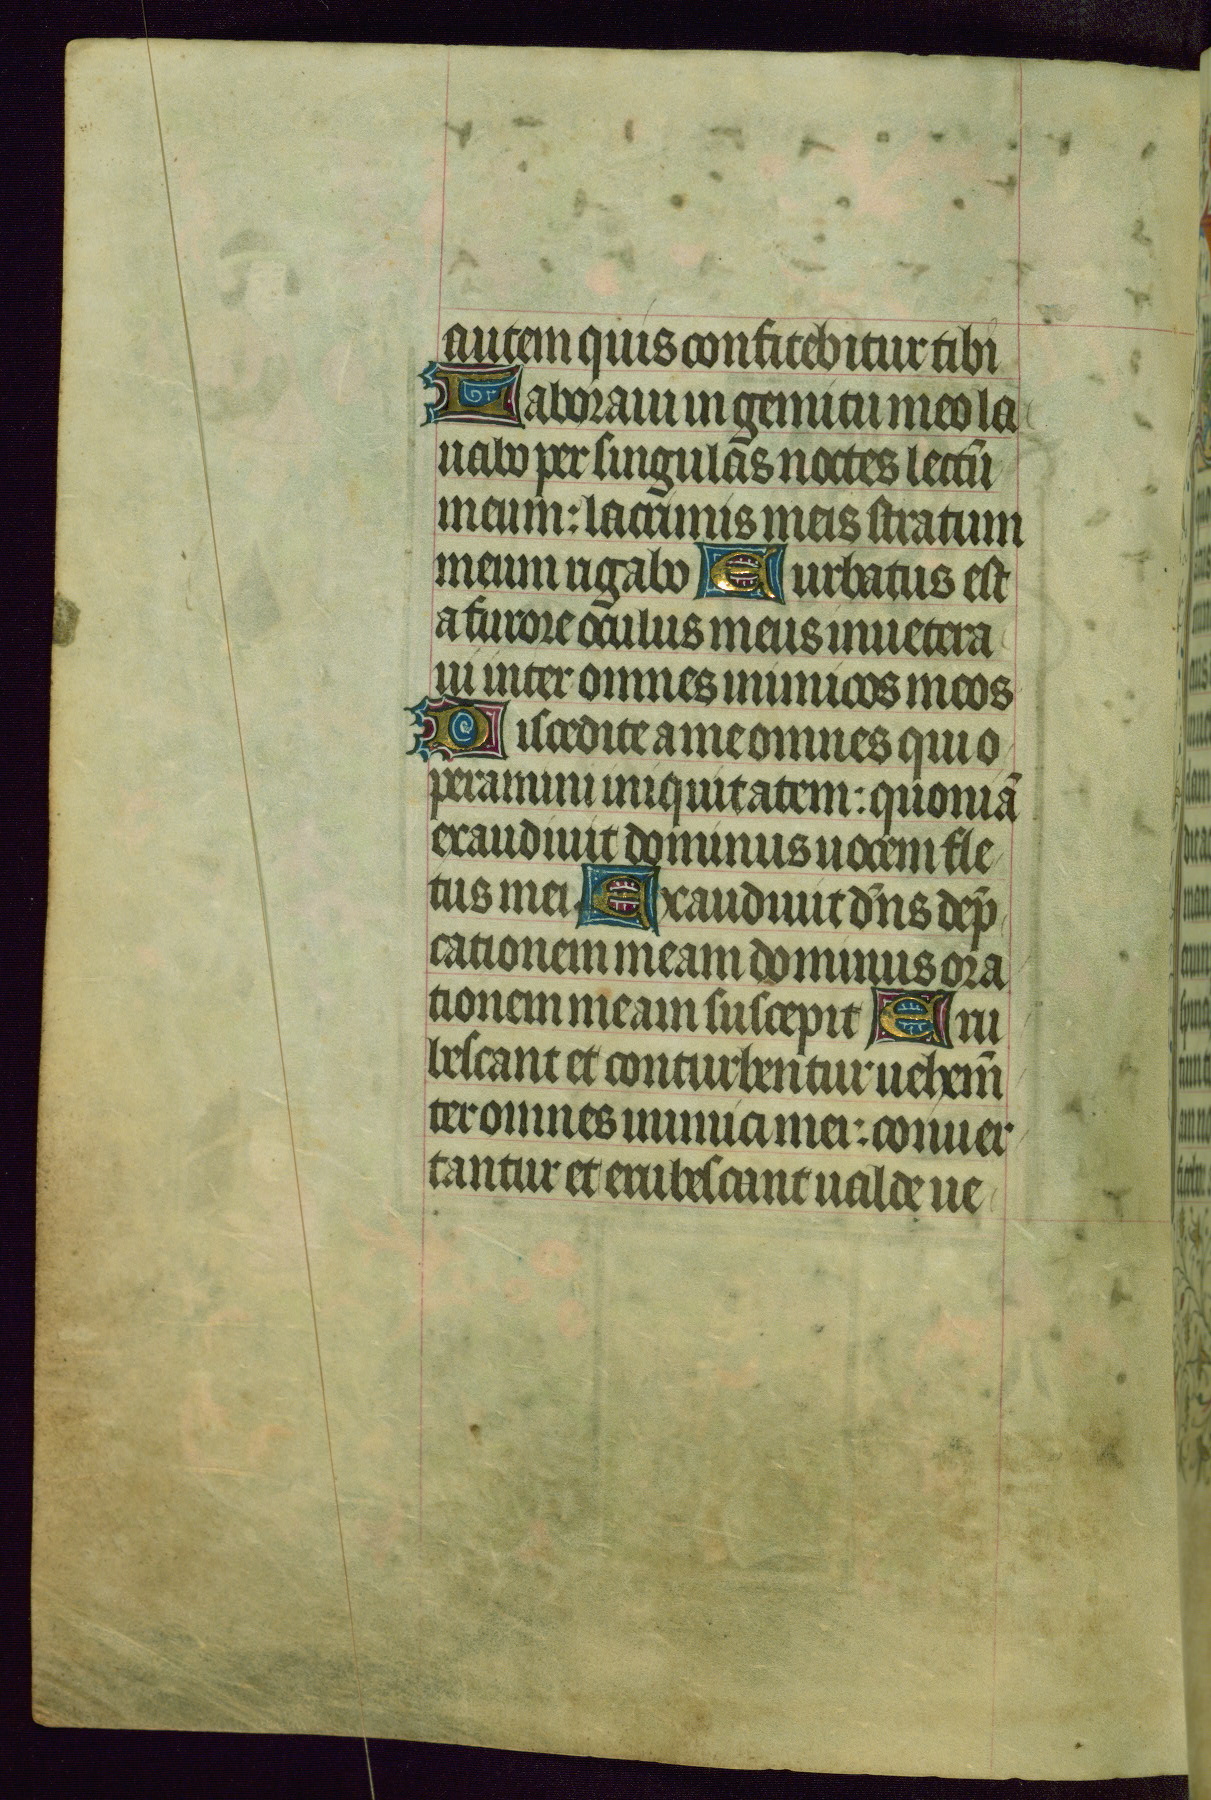 autem quis confitebitur tibi
Laboraui in gemitu meo la
uabo per singulas noctes lectū
meum: lacrimis meis stratum
meum rigabo Eurbatus est
a furore oculus meus inuetera
ui inter omnes inimicos meos
Discedite a me omnes qui o
peramini iniquitatem: quoniā
exaudiuit dominus uocem fle
tus mei. Exaudiuit dn̄s dep̄
cationem meam dominus ora
tionem meam suscepit Eru
bescant et conturbentur uehem̄
ter omnes inimici mei: conuer
tantur et erubescant ualde ue